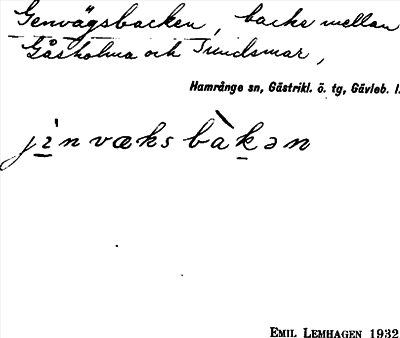 Genvägsbacken, backe mellan
Gåsholma och Trundsmar,
Hamrånge sn, Gästrikl. ö. tg, Gävleb. l.
jìnvæksbàkən
EMIL LEMHAGEN 1932